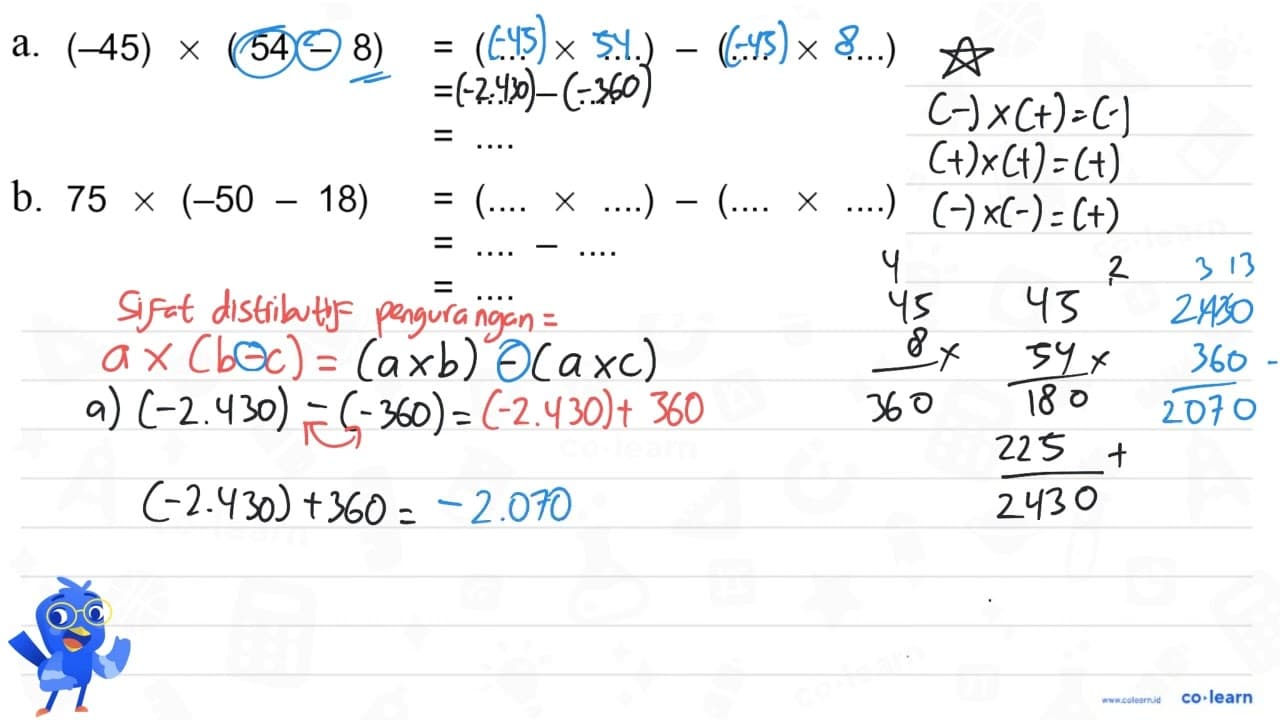 a. (–45) × ( 54 – 8) = ((-45) × 54) – ((-45) × 8)
=(-2.430)–(-360)
= ....
b. 75 × (–50 – 18) = (.... × ....) – (.... × ....)
= .... – ....
= ....
☆
(-)×(+)=(-)
(+)×(+)=(+)
(-)×(-)=(+)
Sifat distributif pengurangan =
a × (b-c) = (a×b) - (a×c)
a) (-2.430) - (-360) = (-2.430)+ 360
(-2.430) +360 = -2.070
4
45
8 ×
360
2
45
54 ×
180
225 +
2430
3 13
2430
360 -
2070
co·learn
www.colearn.id co·learn